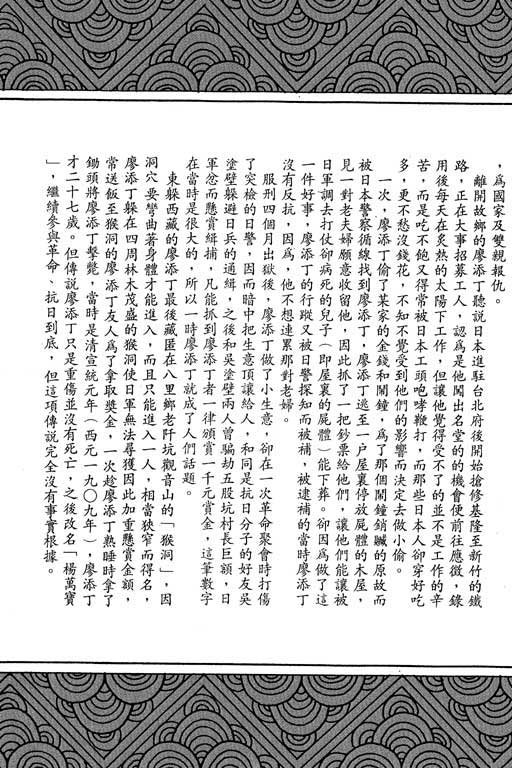 ，爲國家及雙親報仇。
離開故鄉的廖添丁聽説日本進駐台北府後開始搶修基隆至新竹的鐵
路，正在大事招募工人，認爲是他闖出名堂的的機會便前往應徵，錄
用後每天在炙熱的太陽下工作，但讓他覺得受不了的並不是工作的辛
苦，而是吃不飽又得常被日本工頭咆哮鞭打，而那些日本人卻穿好吃
多，更不愁沒錢花，不知不覺受到他們的影響而決定去做小偷。
一次，廖添丁偷了某家的金錢和鬧鐘，爲了那個鬧鐘銷贓的原故而
被日本警察循線找到廖添丁，廖添丁逃至一户屋裏停放屍體的木屋，
見一對老夫婦願意收留他，因此抓了一把鈔票給他們，讓他們能讓被
日軍調去打仗卻病死的兒子（即屋裏的屍體）能下葬。卻因爲做了這
一件好事，廖添丁的行蹤又被日警探知而被補，被逮補的當時廖添丁
沒有反抗，因爲，他不想連累那對老婦。
服刑四個月出獄後，廖添丁做了小生意，卻在一次革命聚會時打傷
了突檢的日警，因而暗中把生意頂讓給人，和同是抗日分子的好友吳
塗壁躲避日兵的通緝，之後和吳塗壁兩人曾騙劫五股坑村長巨額，日
軍忿而懸賞緝捕，凡能抓到廖添丁者一律頒賞一千元賞金，這筆數字
在當時是很大的，所以一時廖添丁就成了人們話題。
東躲西藏的廖添丁最後藏匿在八里鄉老阡坑觀音山的「猴洞」，因
洞穴要彎曲著身體才能進入，而且只能進入一人，相當狹窄而得名，
廖添丁躲在四周林木茂盛的猴洞使日軍無法尋獲因此加重懸賞金額，
常送飯至猴洞的廖添丁友人爲了拿取獎金，一次趁廖添丁熟睡時拿了
鋤頭將廖添丁擊斃，當時是清宣統元年（西元一九〇九年），廖添丁
才二十七歲。但傳説廖添丁只是重傷並沒有死亡，之後改名「楊萬寶
」，繼續參與革命、抗日到底，但這項傳説完全沒有事實根據。